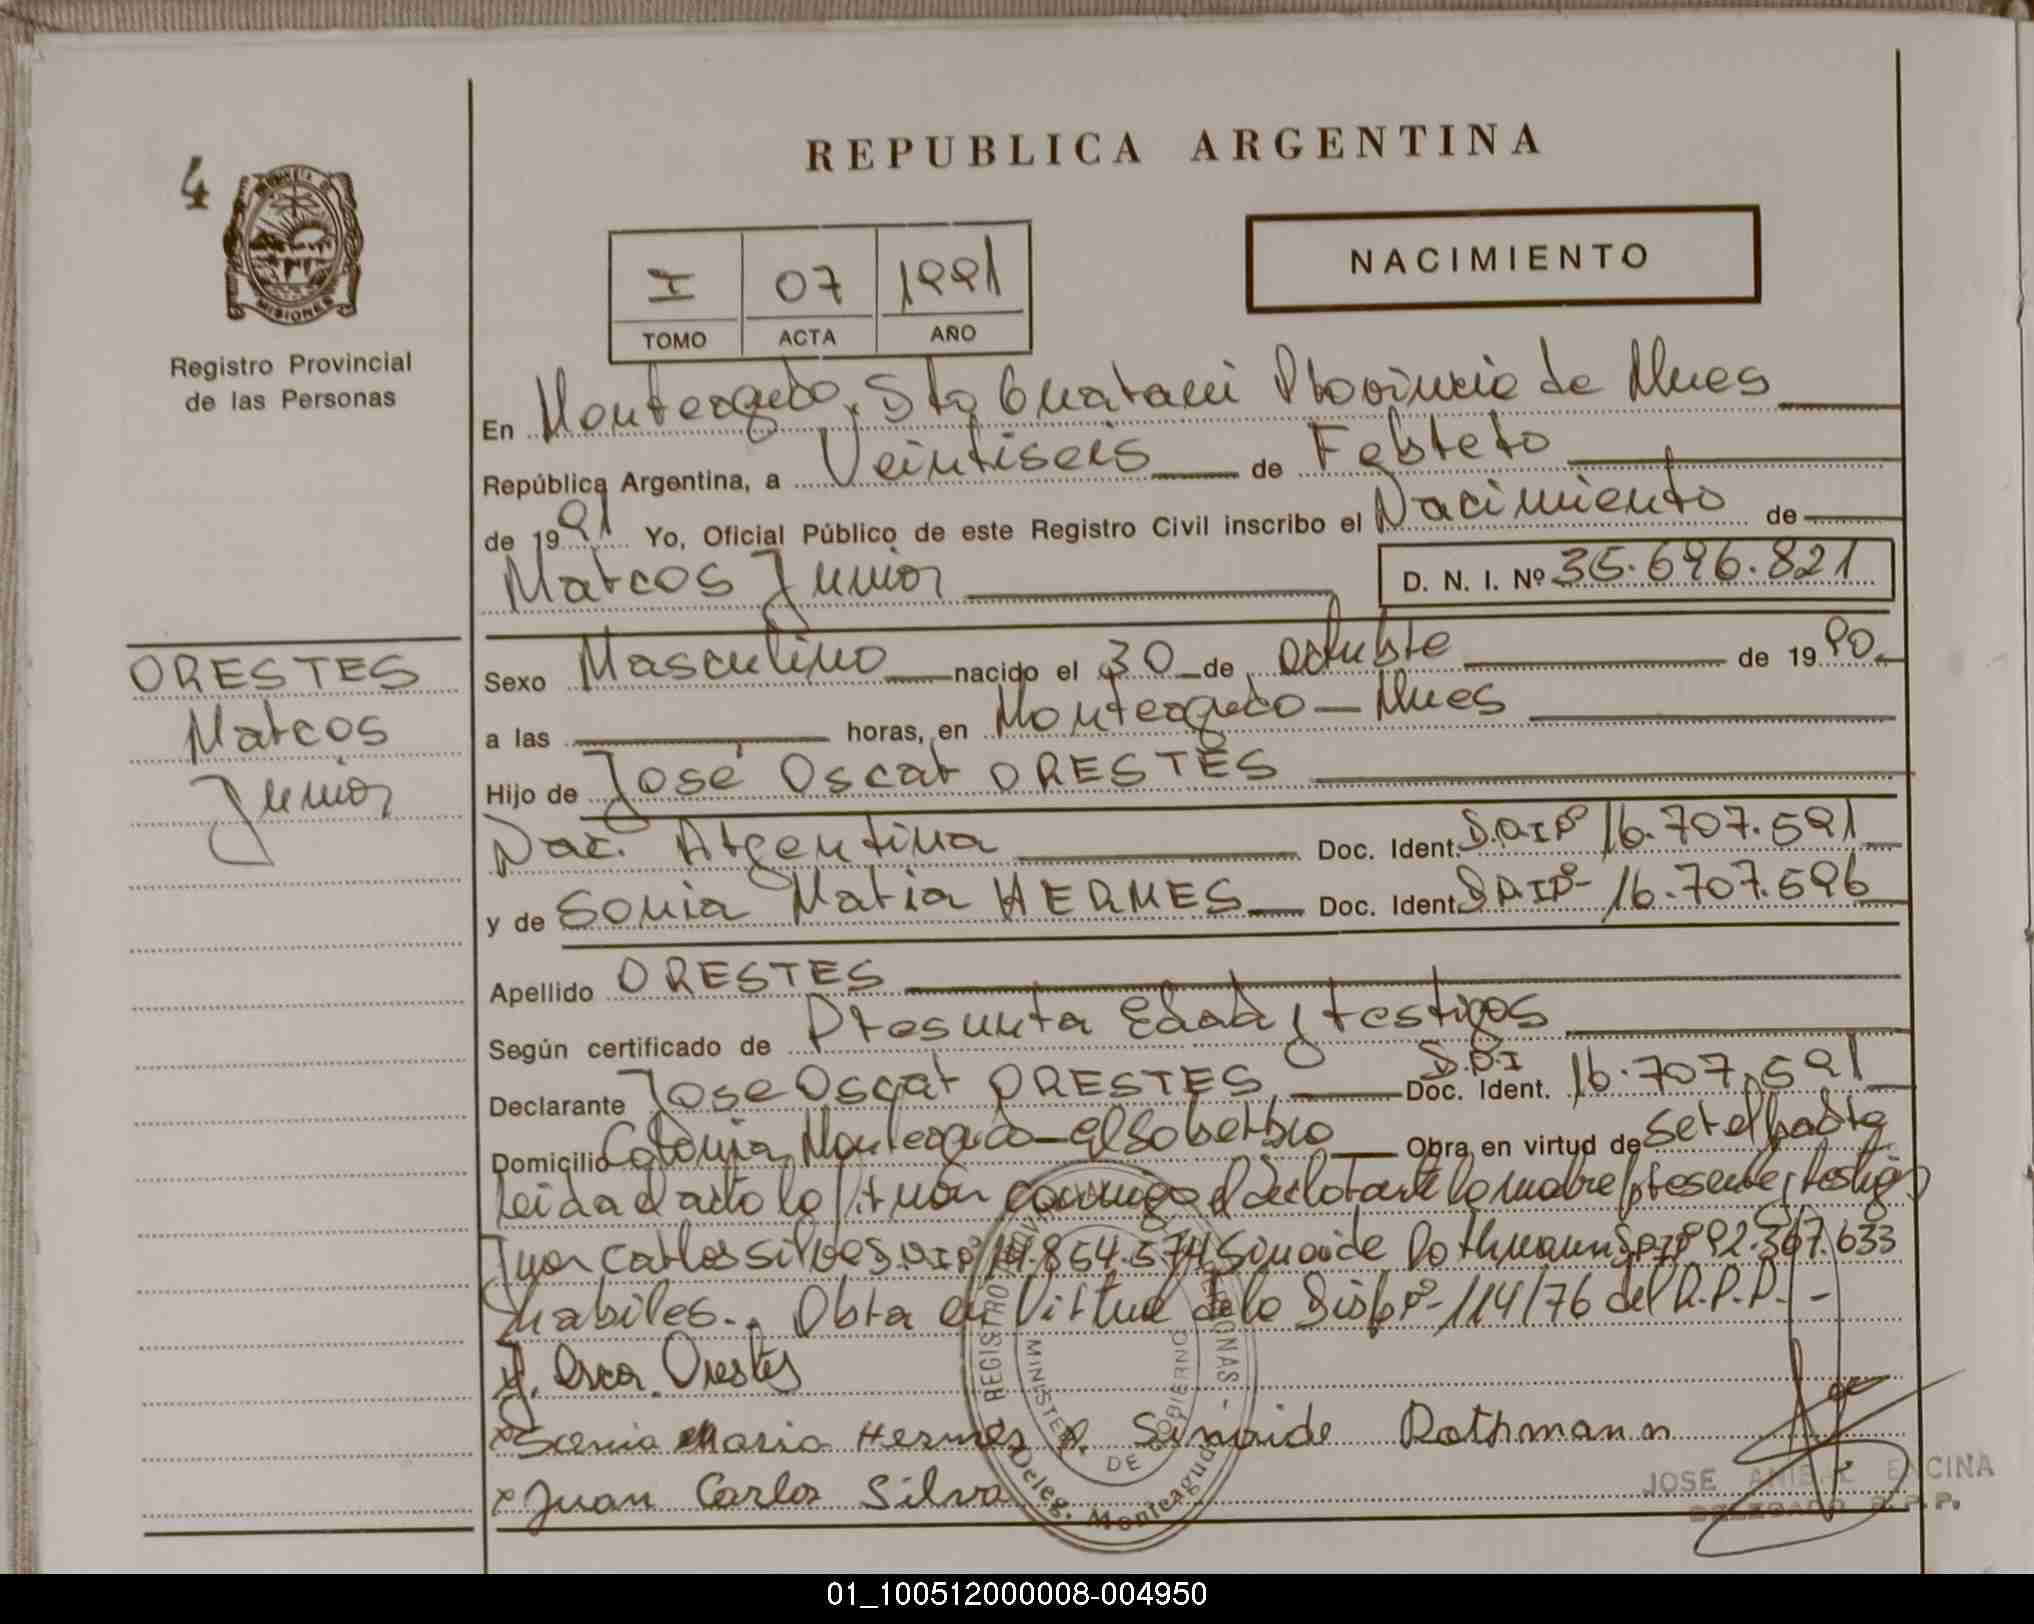 REPUBLICA ARGENTINA
4
MISIONES
Registro Provincial
de las Personas
I 07 1991
TOMO ACTA AÑO
NACIMIENTO
En Monteagudo, Dto Guaraní Provincia de Mnes
República Argentina, a Veintiseis de Febrero
de 1991 Yo, Oficial Público de este Registro Civil inscribo el Nacimiento de
Marcos Junior D. N. I. Nº 35.696.821
ORESTES
Marcos
Junior
Sexo Masculino nacido el 30 de octubre de 1990
a las horas, en Monteagudo - Mnes
Hijo de José Oscar ORESTES
Nac. Argentina Doc. Ident. D.N.I Nº 16.707.591
y de Sonia Maria HERMES Doc. Ident. D.N.I Nº 16.707.596
Apellido ORESTES
Según certificado de Presunta Edad y testigos
Declarante Jose Oscar ORESTES D.N.I Doc. Ident. 16.707.591
Domicilio Colonia Monteagudo - El Soberbio Obra en virtud de ser el padre
Leida el acta la firman conmigo el declarante la madre presente y testigos
Juan Carlos Silva D.N.I Nº 14.854.574 Sinaide Rothmann D.N.I Nº 92.367.633
habiles. Obra en Virtud de la Disp Nº 114/76 del R.P.P. -
J. Oscar Orestes
x Sonia Maria Hermes x Sinaide Rothmann
x Juan Carlos Silva
REGISTRO PERSONAS
MINISTERIO DE GOBIERNO
Deleg. Monteagudo
JOSE ANIBAL ENCINA
DELEGADO R. P. P.
01_100512000008-004950